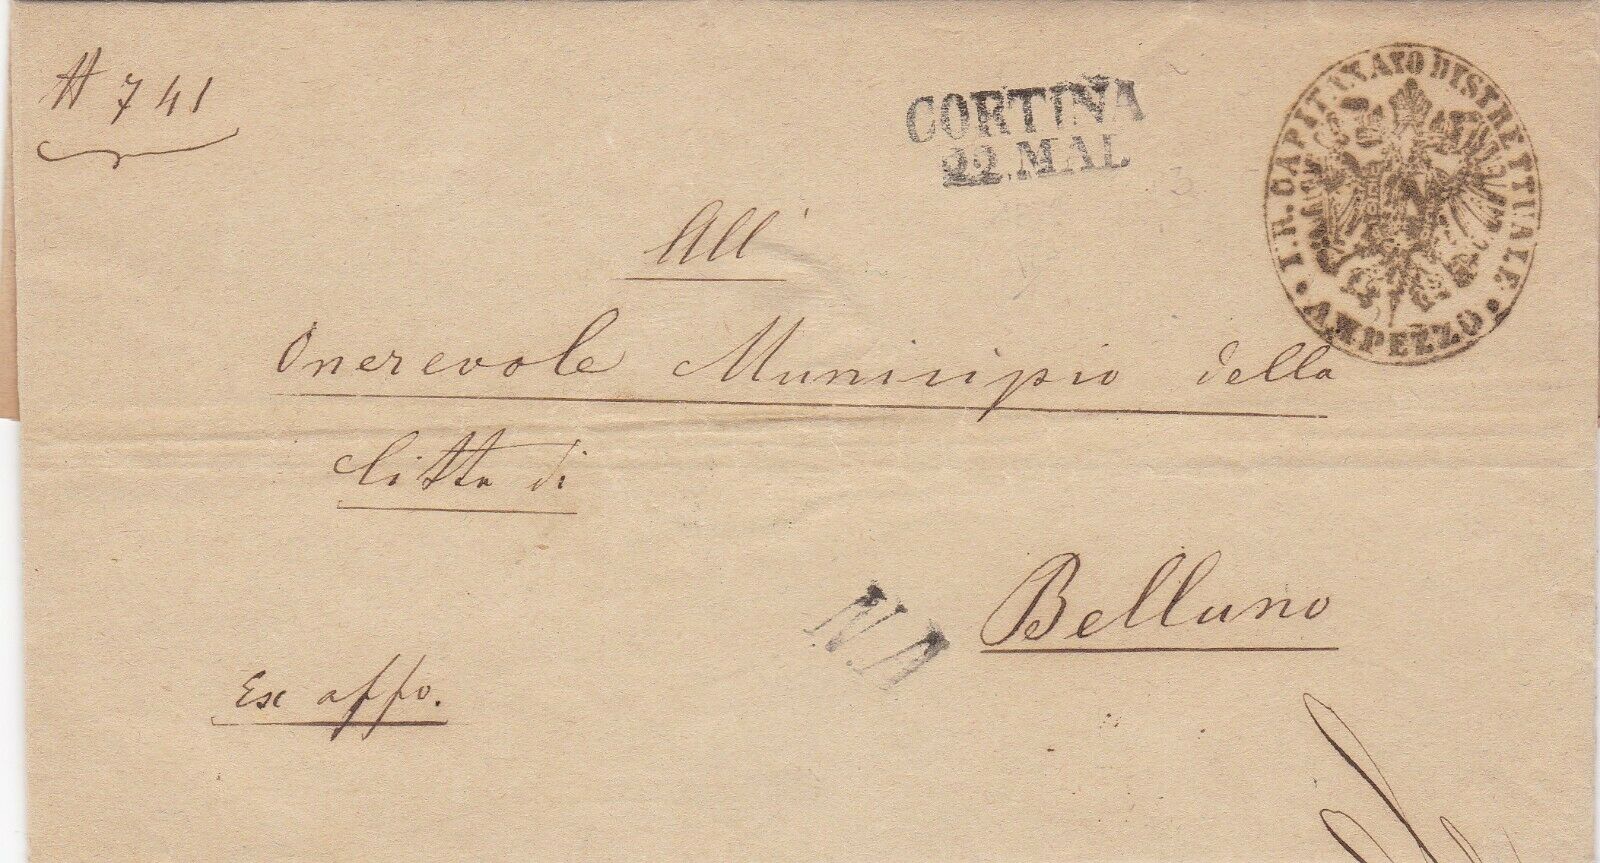 # 741
CORTINA
22. MAI.
I. R. CAPITANATO DISTRETTUALE
• AMPEZZO •
All'
Onorevole Municipio della
Citta di
Belluno
N. A
Ex offo.